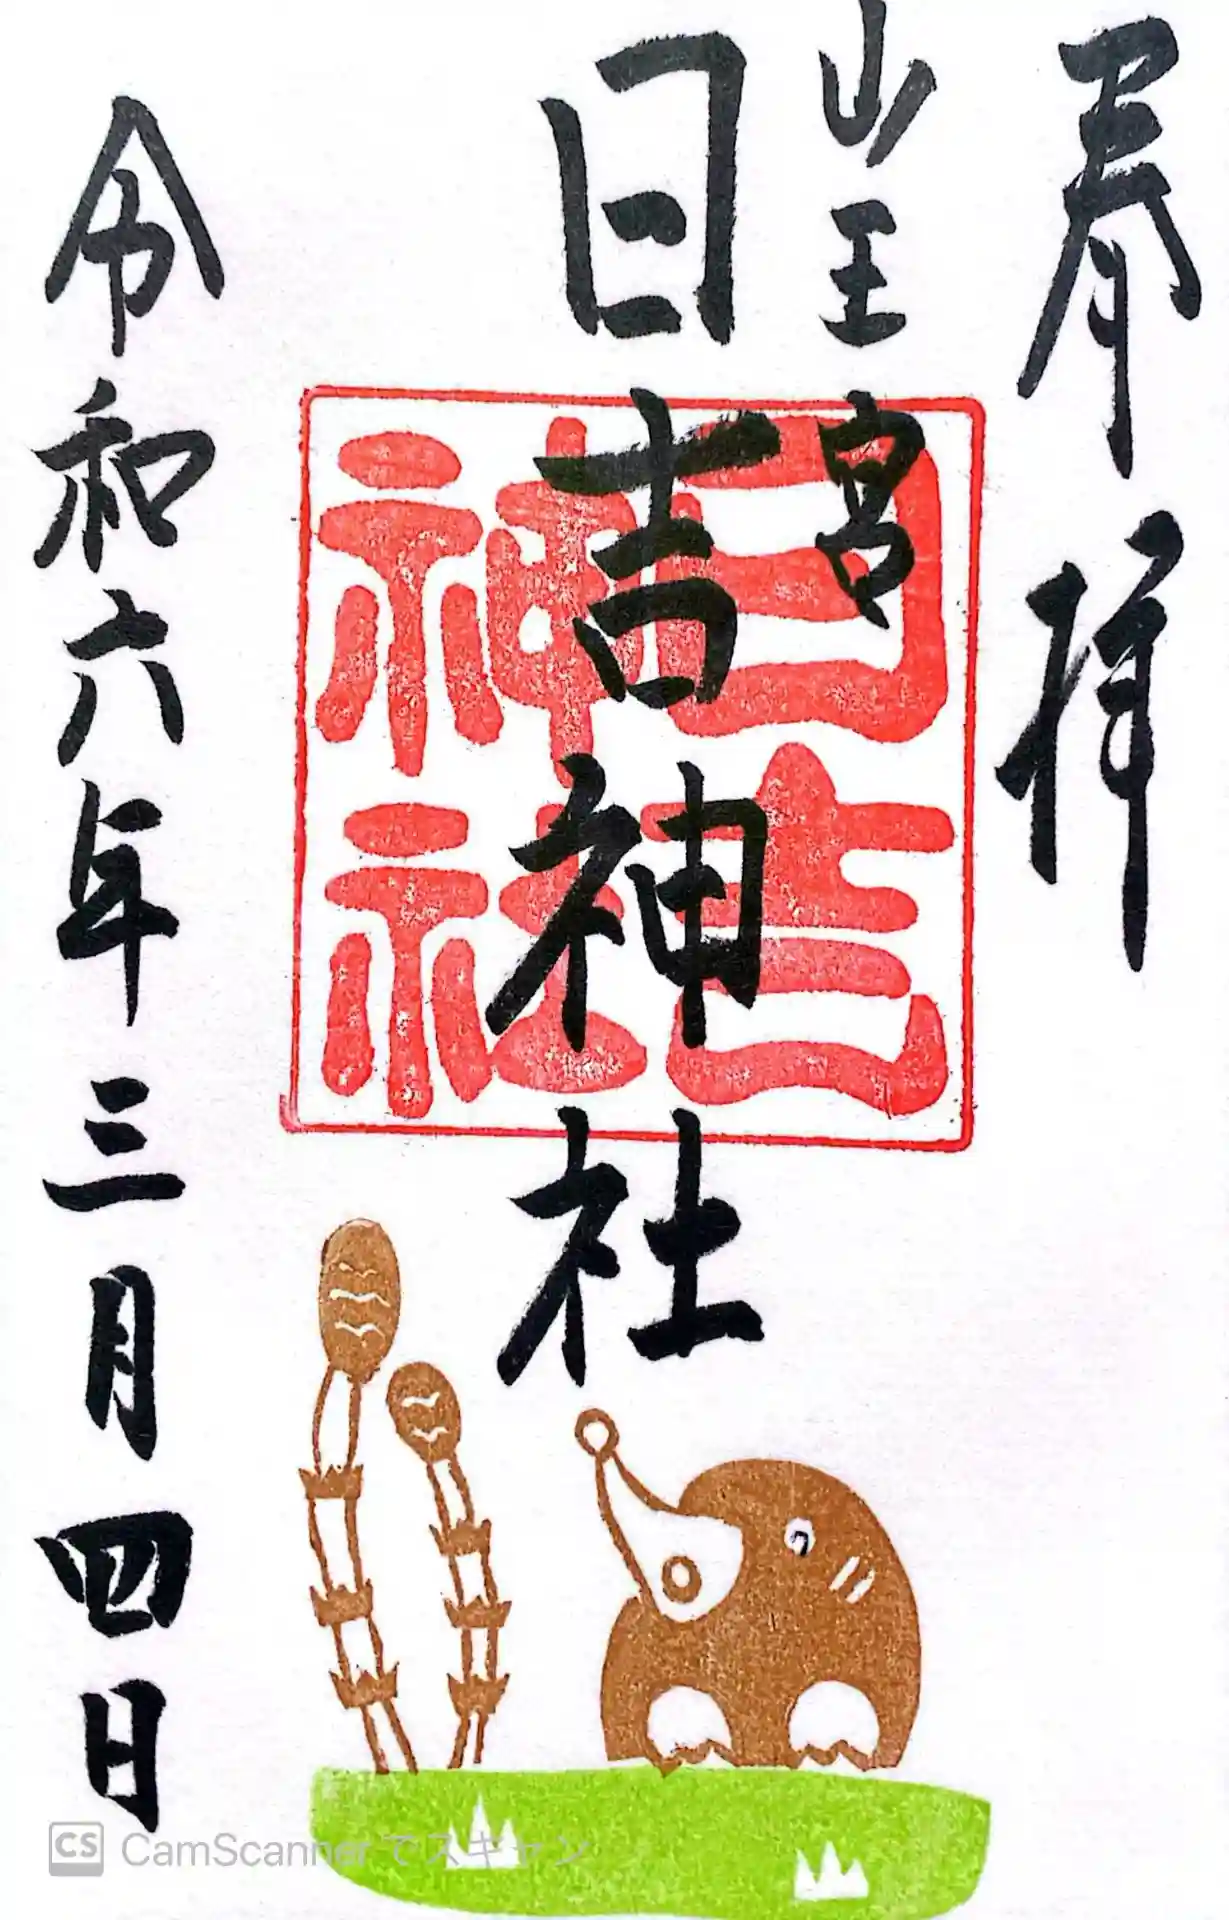 奉拝
山王宮
日吉神社
日吉
神社
令和六年三月四日
CS CamScannerでスキャン